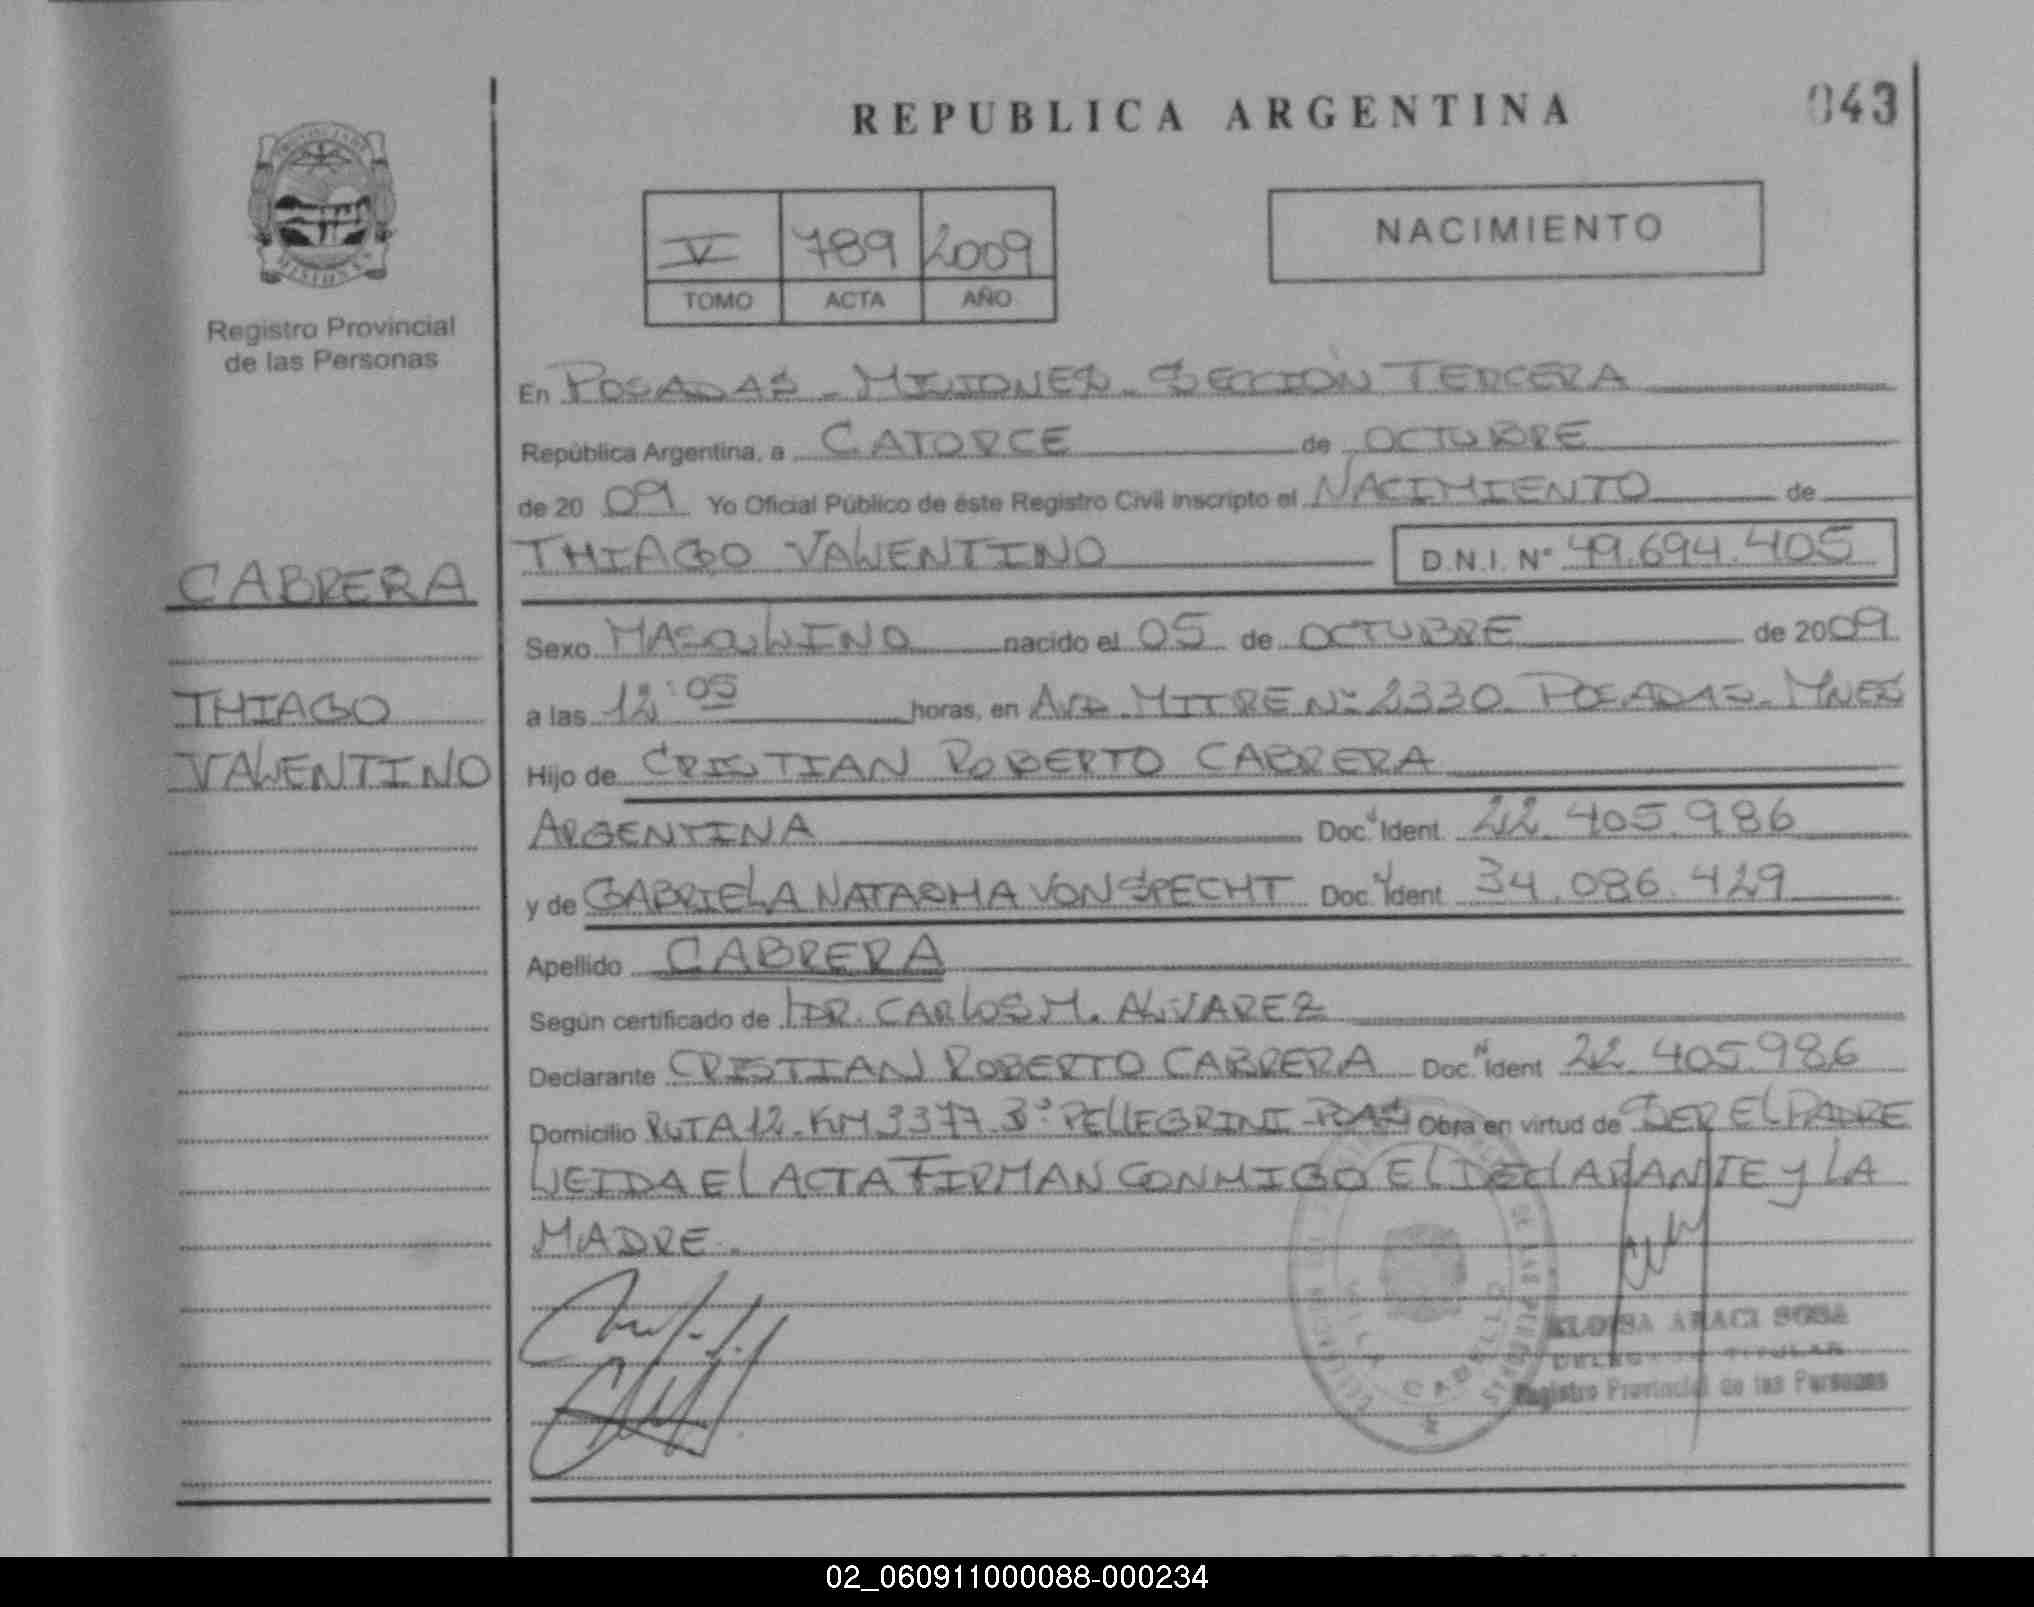 REPUBLICA ARGENTINA
043
V 789 2009
TOMO ACTA AÑO
NACIMIENTO
Registro Provincial
de las Personas
CABRERA
THIAGO
VALENTINO
En POSADAS - MISIONES - SECCION TERCERA
República Argentina, a CATORCE de OCTUBRE
de 20 09 Yo Oficial Público de éste Registro Civil inscripto el NACIMIENTO de
THIAGO VALENTINO D.N.I. Nº 49.694.405
Sexo MASCULINO nacido el 05 de OCTUBRE de 2009
a las 12:05 horas, en AVDA. MITRE Nº 2330 POSADAS - MNES
Hijo de CRISTIAN ROBERTO CABRERA
ARGENTINA Doc. Ident. 22.405.986
y de GABRIELA NATASHA VON SPECHT Doc. Ident. 34.086.429
Apellido CABRERA
Según certificado de DR. CARLOS M. ALVAREZ
Declarante CRISTIAN ROBERTO CABRERA Doc. Ident 22.405.986
Domicilio RUTA 12 - KM 3377 - Bº PELLEGRINI - PDAS Obra en virtud de SER EL PADRE
LEIDA EL ACTA FIRMAN CONMIGO EL DECLARANTE Y LA
MADRE.
ELOISA ARACI SOSA
TITULAR
Registro Provincial de las Personas
02_060911000088-000234